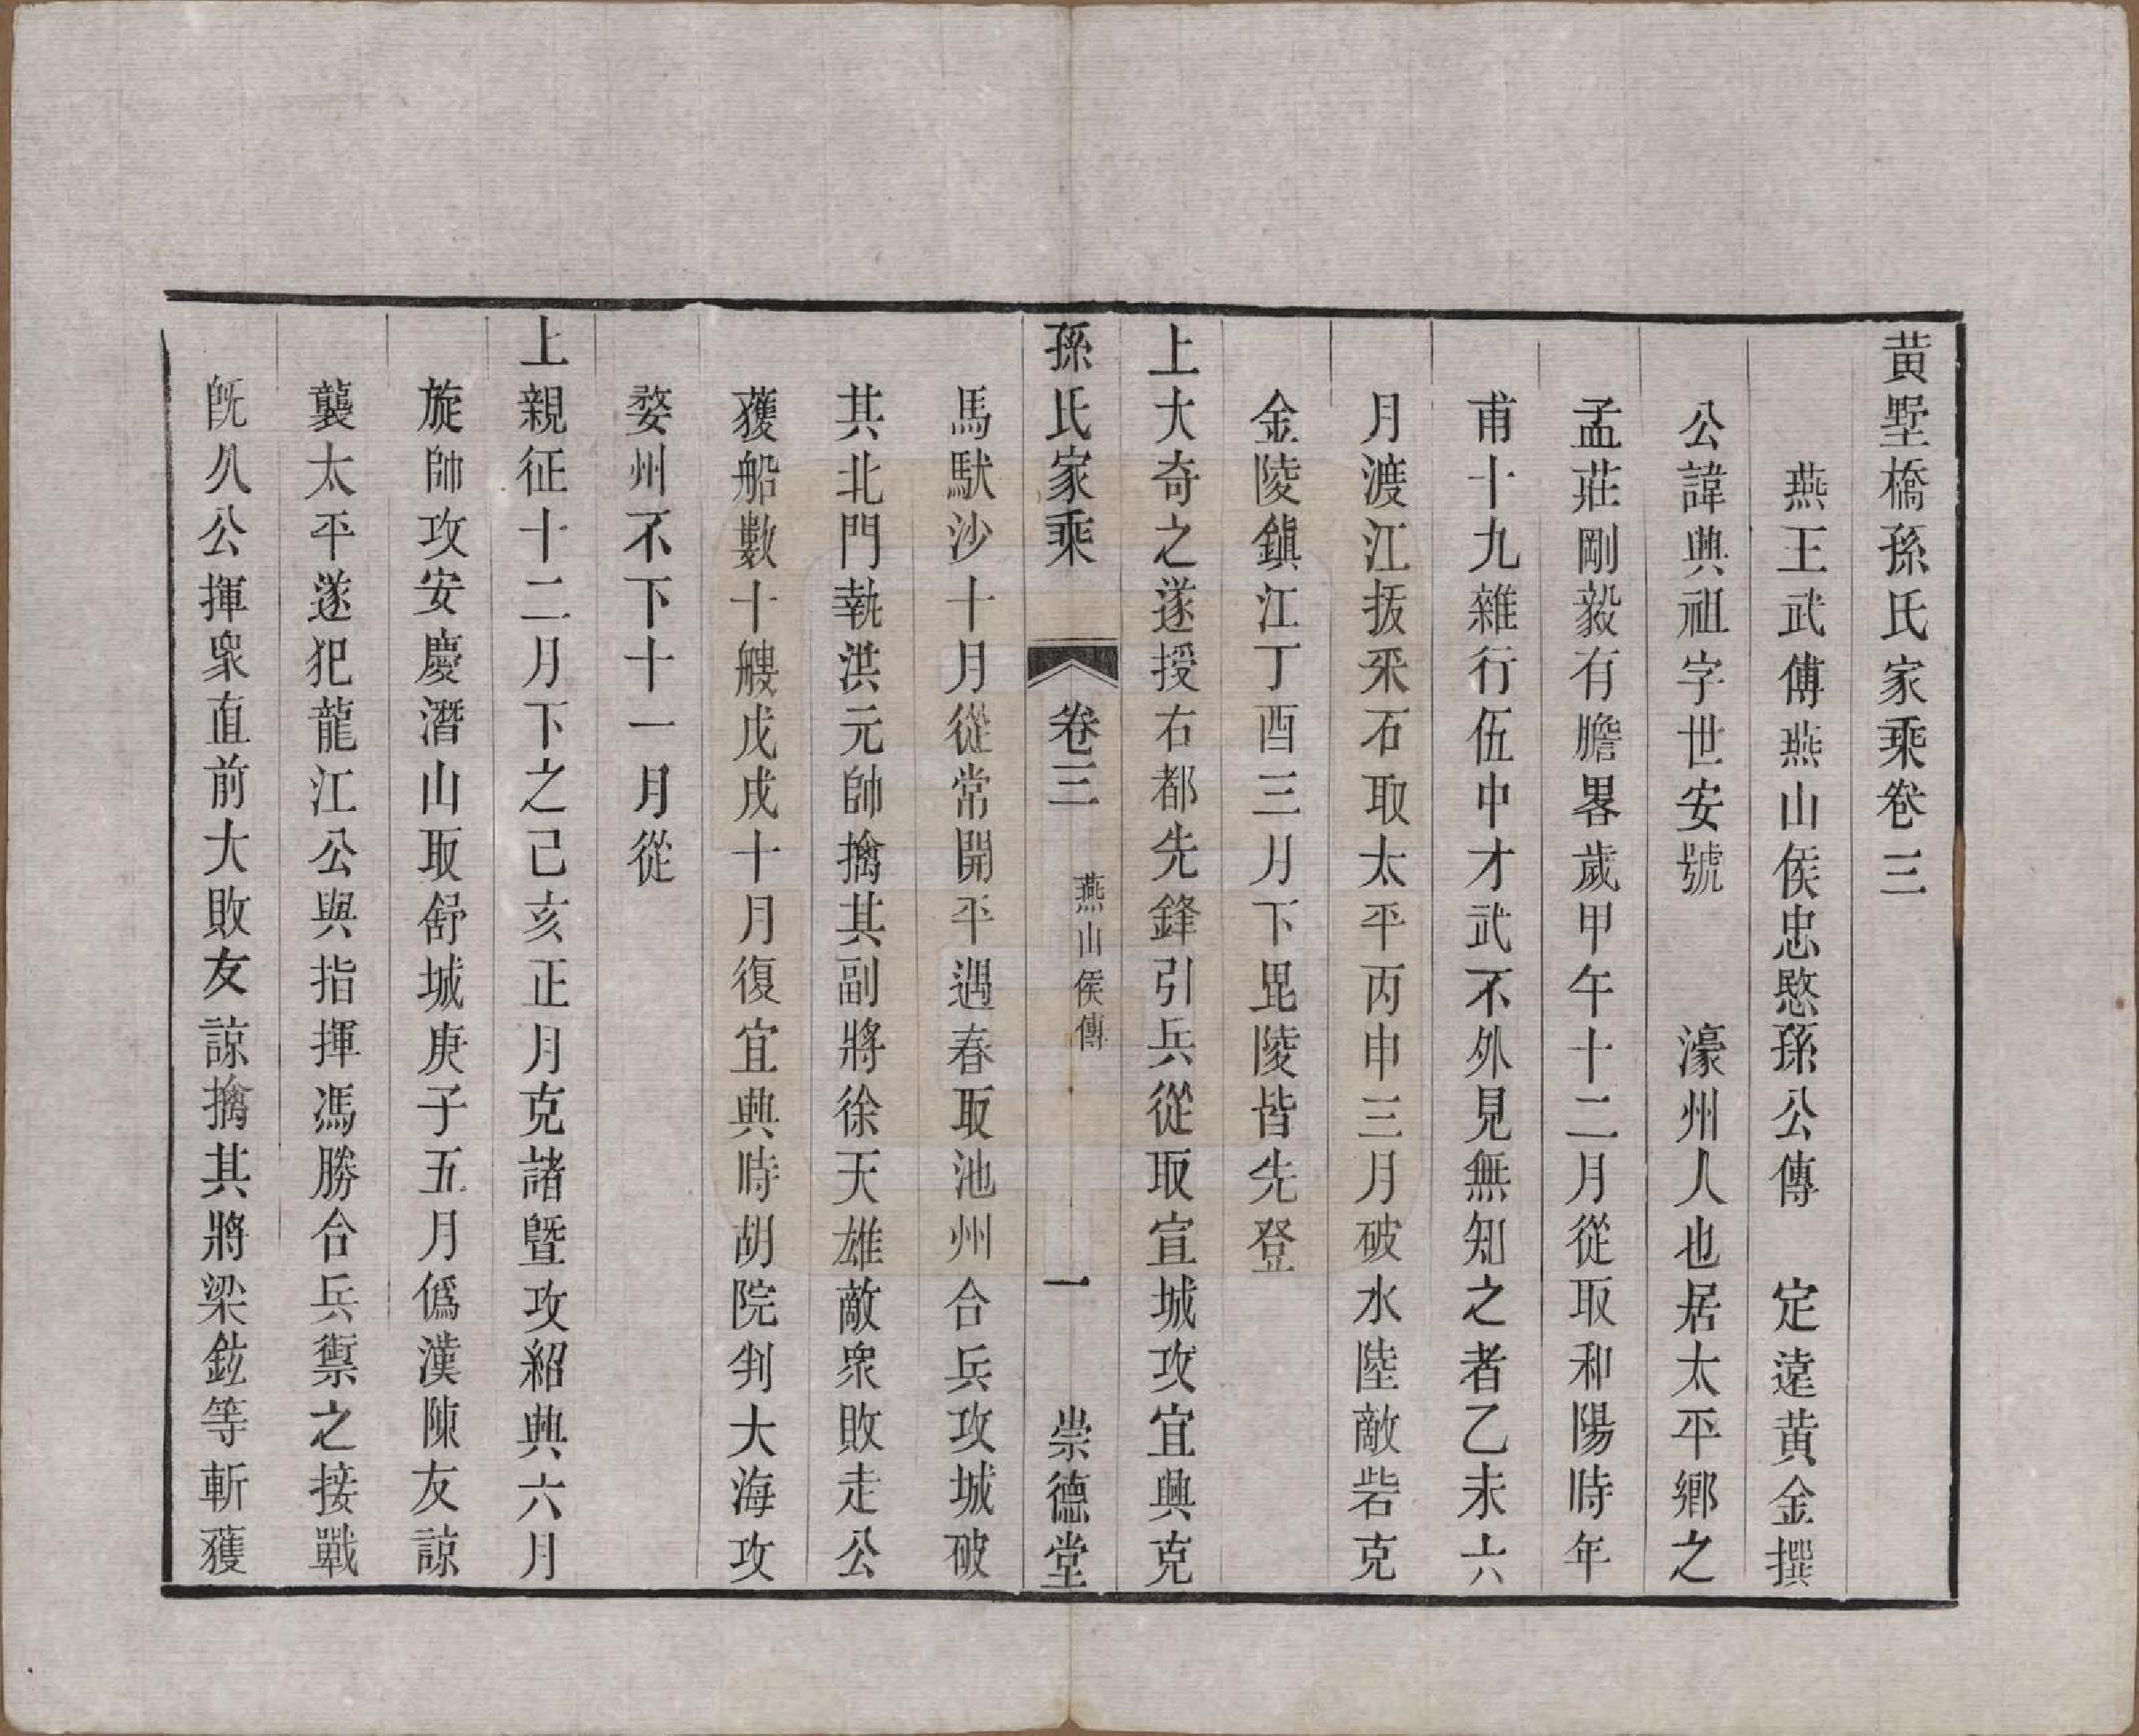 黄墅橋孫氏家乘卷三
燕王武傅燕山侯忠愍孫公傳　定遠黄金撰
公諱興祖字世安號　　濠州人也居太平鄉之
孟莊剛毅有膽畧歲甲午十二月從取和陽時年
甫十九雜行伍中才武不外見無知之者乙未六
月渡江拔采石取太平丙申三月破水陸敵砦克
金陵鎮江丁酉三月下毘陵皆先登
上大奇之遂授右都先鋒引兵從取宣城攻宜興克
孫氏家乘　卷三　燕山侯傳　一　崇德堂
馬馱沙十月從常開平遇春取池州合兵攻城破
其北門執洪元帥擒其副將徐天雄敵衆敗走公
獲船數十艘戊戌十月復宜興時胡院判大海攻
婺州不下十一月從
上親征十二月下之己亥正月克諸暨攻紹興六月
旋帥攻安慶潛山取舒城庚子五月僞漢陳友諒
襲太平遂犯龍江公與指揮馮勝合兵禦之接戰
旣久公揮衆直前大敗友諒擒其將梁鉉等斬獲